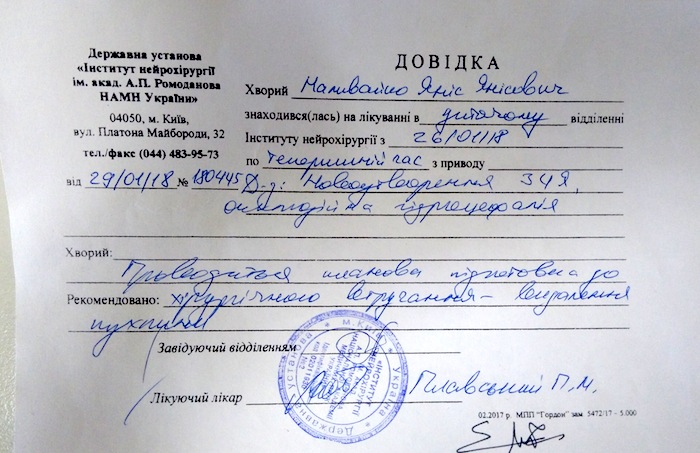 Державна установа
«Інститут нейрохірургії
ім. акад. А.П. Ромоданова
НАМН України»
04050, м. Київ,
вул. Платона Майбороди, 32
тел./факс (044) 483-95-73
від 29/01/18 № 180445
ДОВІДКА
Хворий Наливайко Яніс Янісович
знаходився(лась) на лікуванні в дитячому відділенні
Інституту нейрохірургії з 26/01/18
по теперишній час з приводу
Д-з: Новоутворення ЗЧЯ,
оклюзійна гідроцефалія
Хворий:
Проводиться планова підготовка до
Рекомендовано: хірургічного втручання – видалення
пухлини
Завідуючий відділенням
Лікуючий лікар Плавський П.М.
м. Київ Україна
Державна установа
«ІНСТИТУТ
НЕЙРОХІРУРГІЇ
02.2017 р. МПП "Гордон" зам. 5472/17 - 5.000